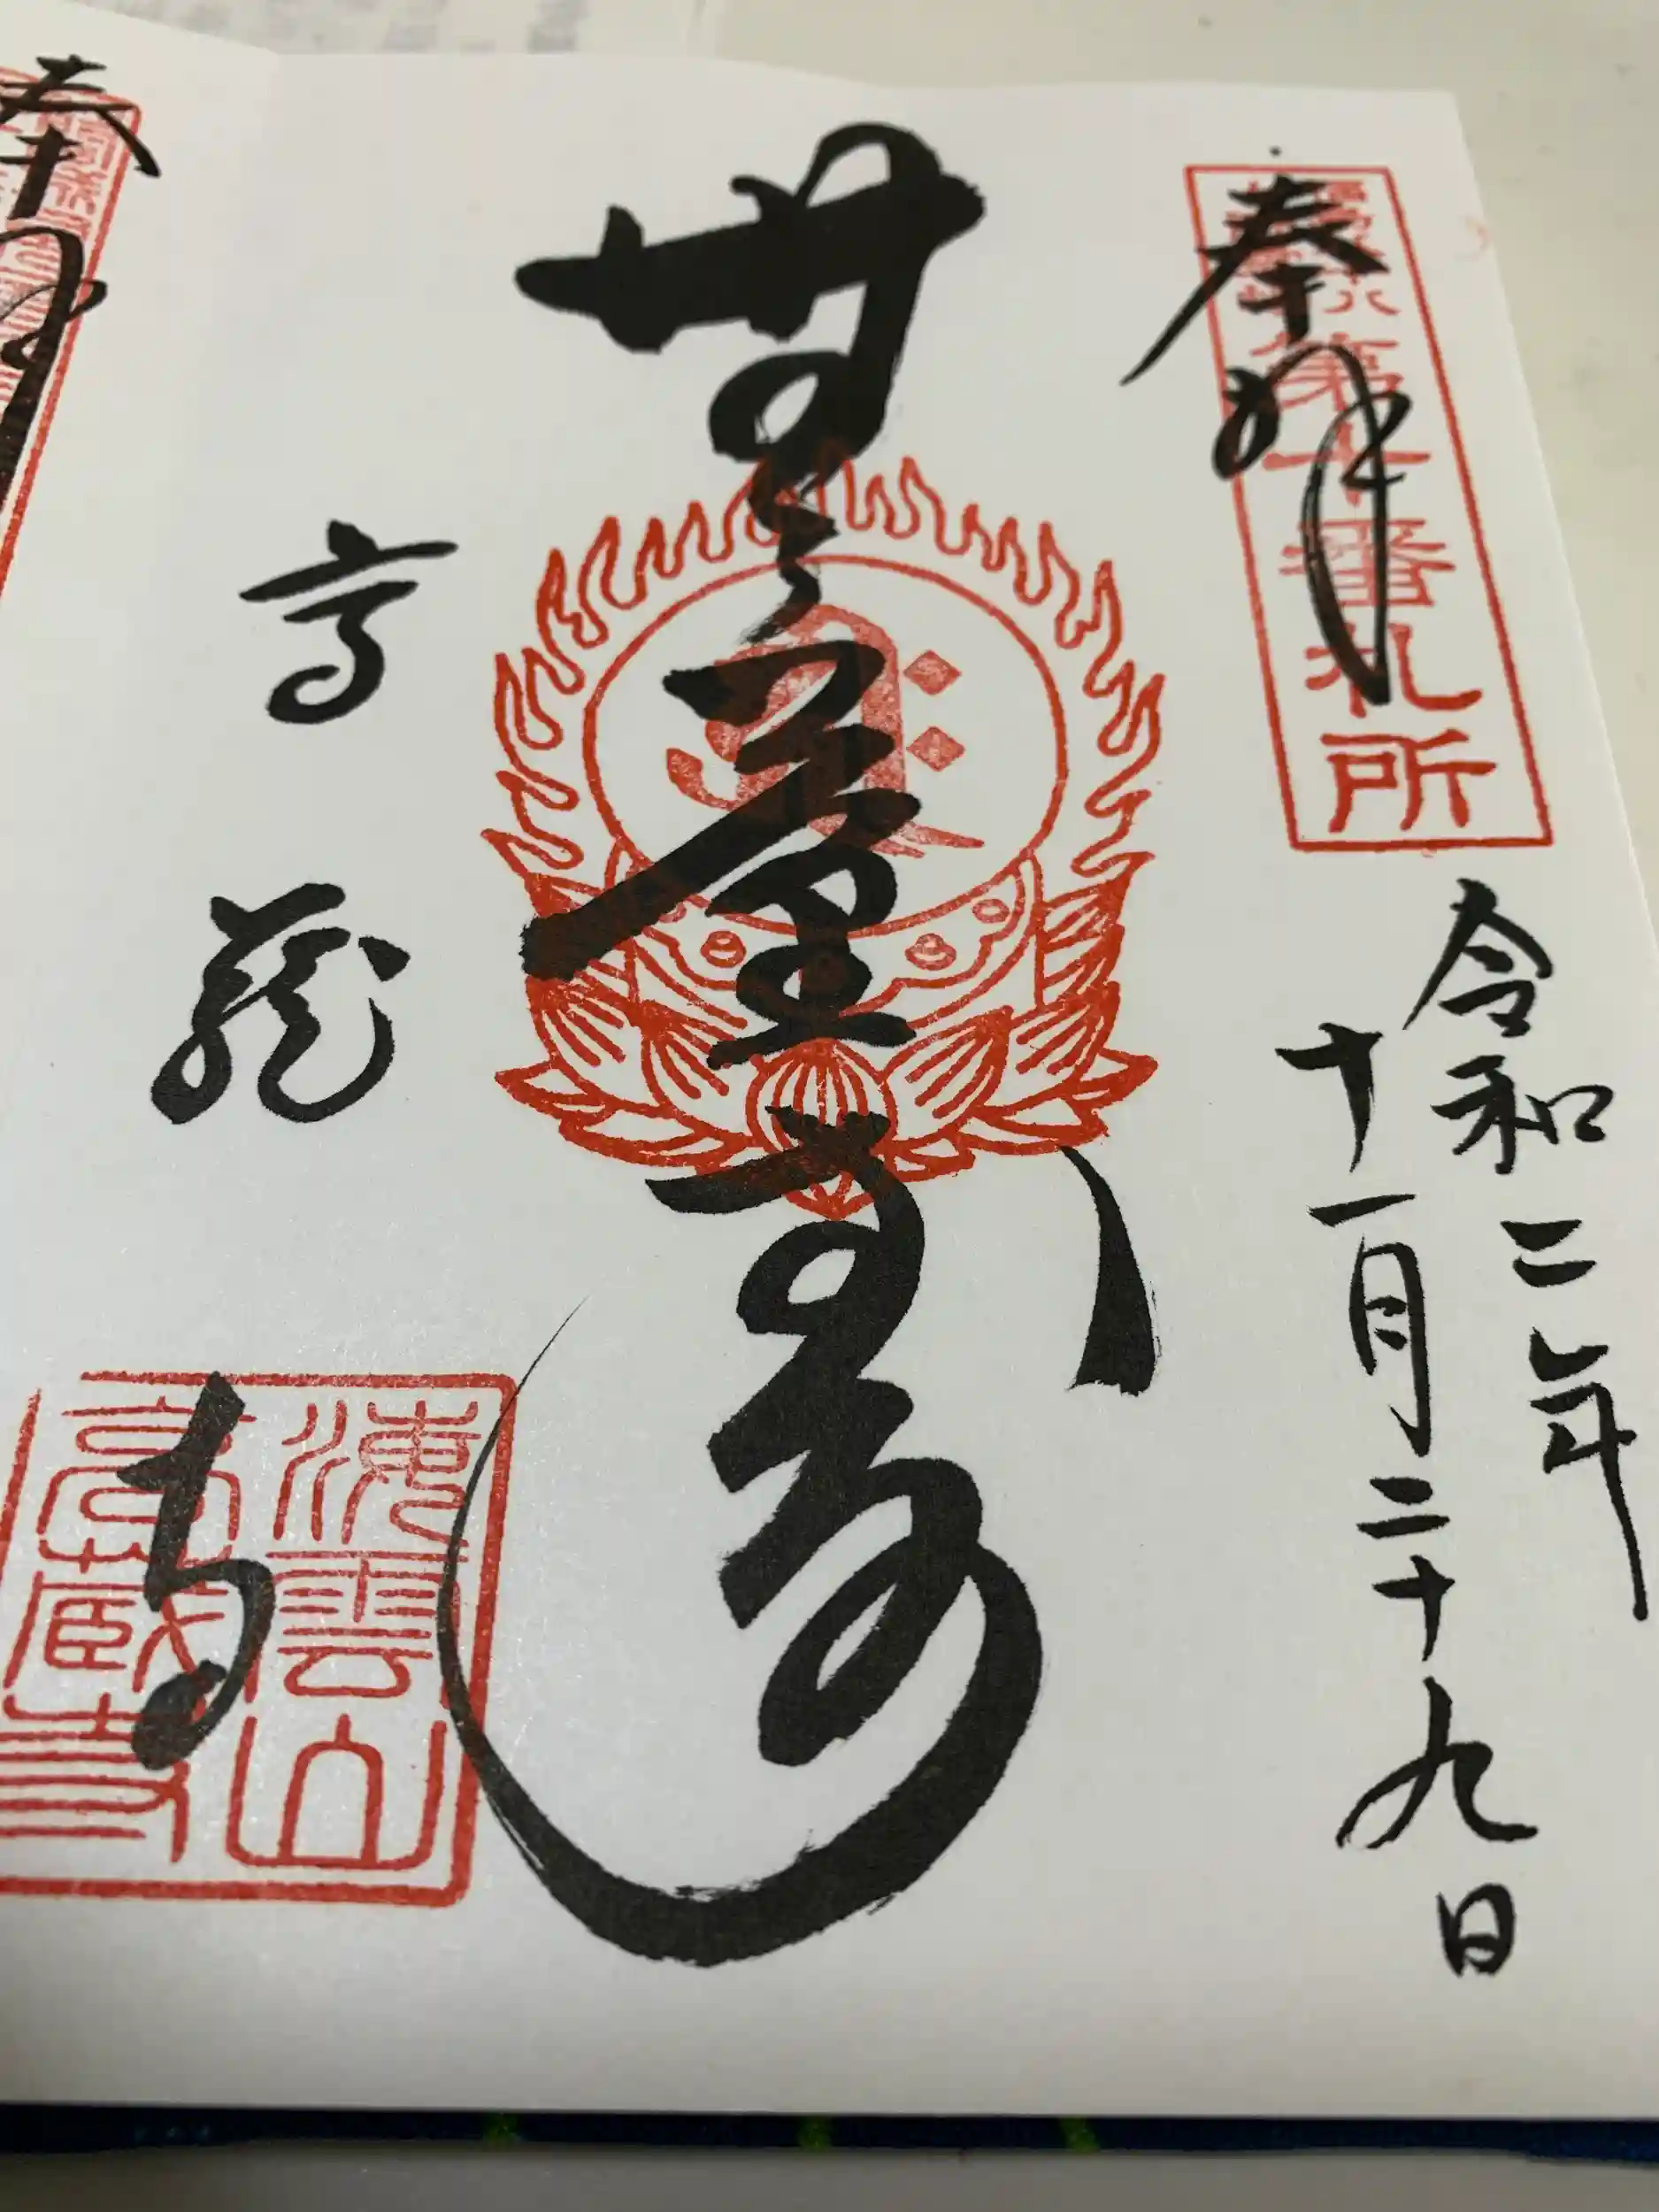 奉拝
第十番札所
令和二年
十一月二十九日
無量寿
高蔵寺
凍雲山
高蔵寺
奉拝